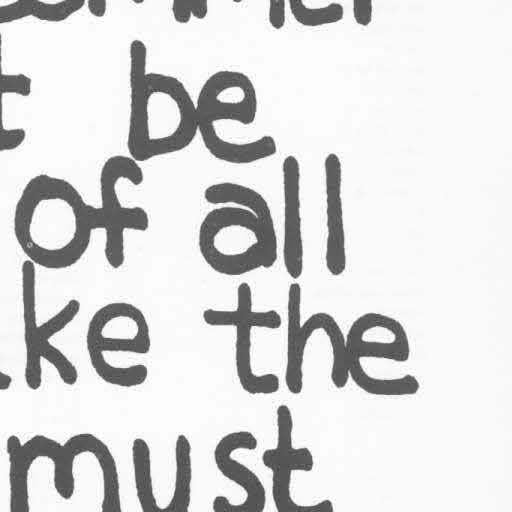 be
of all
ke the
must